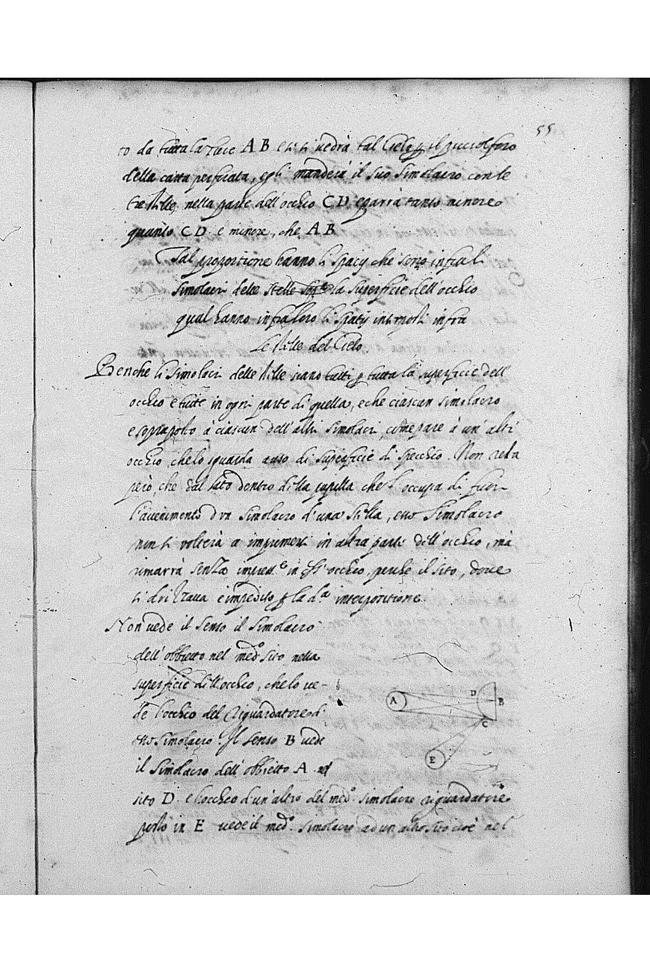 55
to da tutta la luce A B e ti si vedrà tal Cielo il piccol foro
della carta perforata, egli manderà il suo simolacro con le
stelle, nella parte dell'occhio C D, e parrà tanto minore
quanto C D è minore, che A B
Tal proportione hanno li spacij che sono infra li
simolacri delle stelle la superficie dell'occhio
qual hanno infra loro li spatij interposti infra
le stelle del Cielo
Benche li simolacri delle stelle siano tutti p tutta la superficie dell'
occhio e tutte in ogni parte di quella, e che ciascun simolacro
e sopraposto à ciascun dell'altri simolacri, come pare à un'altr'
occhio, che lo sguarda a uso di superficie di specchio. Non resta
però, che dal lato dentro della pupilla che l'occupa di fuor
l'avenimento d'un simolacro d'una stella, esso simolacro
non si volterà a imprimersi in altra parte dell'occhio, mà
rimarrà senza in occhio, perche il sito, dove
si dirizzava e impedito p la d.a interpositione.
Non vede il senso il simolacro
dell'obbietto nel med.o sito nella
superficie dell'occhio, che lo ve-
de l'occhio del riguardatore di
esso simolacro. Il senso B vede
il simolacro dell'obbietto A nel
sito D. e l'occhio d'un'altro del med.o simolacro riguardatore
posto in E vede il med.o simolacro ad un'altro sito cioè nel
A
D
B
C
E